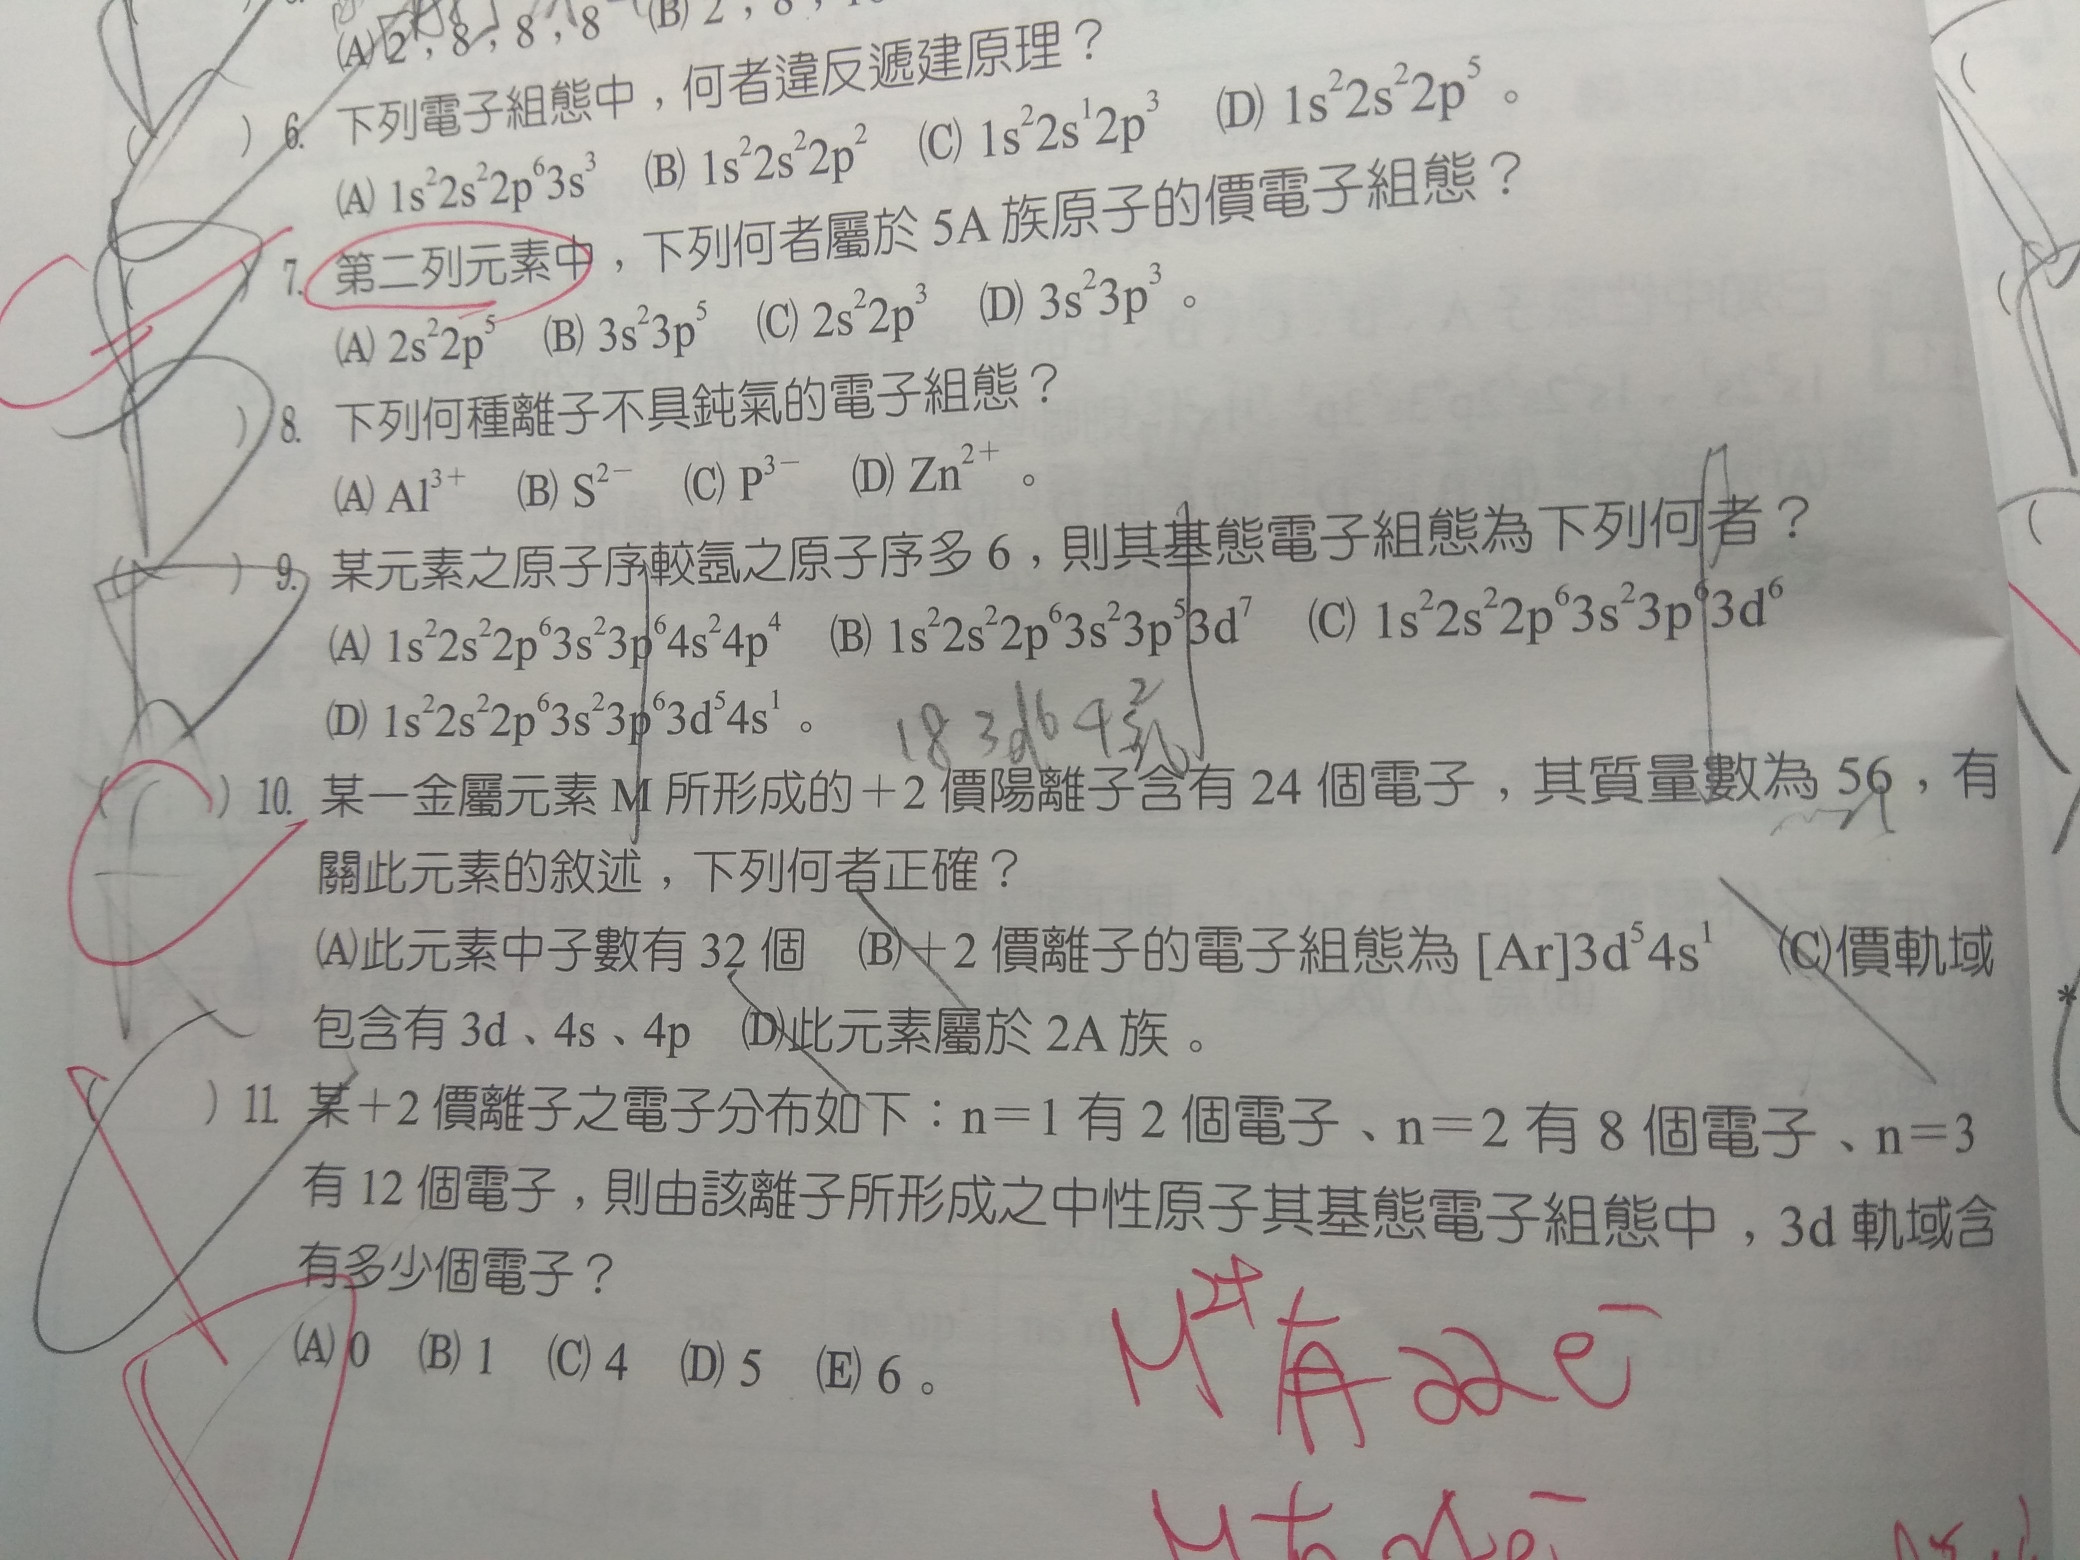 (A) 2，8，8，8　(B) 2，8，
(　　) 6. 下列電子組態中，何者違反遞建原理？
(A) 1s²2s²2p⁶3s³　(B) 1s²2s²2p²　(C) 1s²2s¹2p³　(D) 1s²2s²2p⁵。
(　　) 7. 第二列元素中，下列何者屬於 5A 族原子的價電子組態？
(A) 2s²2p⁵　(B) 3s²3p⁵　(C) 2s²2p³　(D) 3s²3p³。
(　　) 8. 下列何種離子不具鈍氣的電子組態？
(A) Al³⁺　(B) S²⁻　(C) P³⁻　(D) Zn²⁺。
(　　) 9. 某元素之原子序較氬之原子序多 6，則其基態電子組態為下列何者？
(A) 1s²2s²2p⁶3s²3p⁶4s²4p⁴　(B) 1s²2s²2p⁶3s²3p⁵3d⁷　(C) 1s²2s²2p⁶3s²3p⁶3d⁶
(D) 1s²2s²2p⁶3s²3p⁶3d⁵4s¹。
18 3d⁶ 4s²
(　　) 10. 某一金屬元素 M 所形成的＋2 價陽離子含有 24 個電子，其質量數為 56，有
關此元素的敘述，下列何者正確？
(A)此元素中子數有 32 個　(B)＋2 價離子的電子組態為 [Ar]3d⁵4s¹　(C)價軌域
包含有 3d、4s、4p　(D)此元素屬於 2A 族。
*
(　　) 11. 某＋2 價離子之電子分布如下：n＝1 有 2 個電子、n＝2 有 8 個電子、n＝3
有 12 個電子，則由該離子所形成之中性原子其基態電子組態中，3d 軌域含
有多少個電子？
(A) 0　(B) 1　(C) 4　(D) 5　(E) 6。
M²⁺有22e⁻